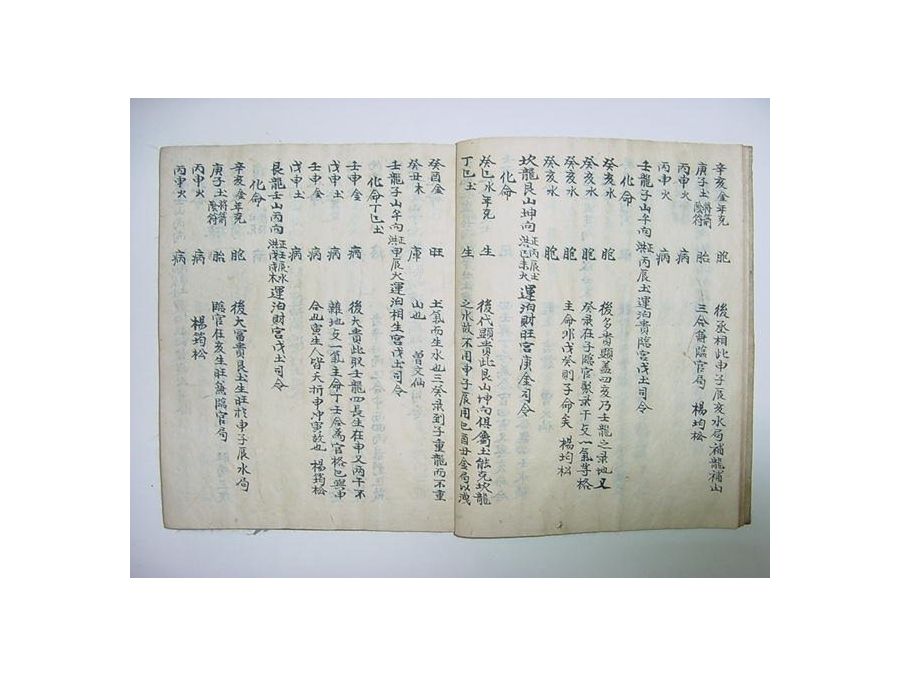 辛亥金年克 胞 後丞相此申子辰亥水局補龍補山
庚子土 將箭 陰符 胎 三合兼臨官局 楊均松
丙申火 病
丙申火 病
壬龍子山午向 正丙辰土運泊貴臨宮戊土司令
化命
癸亥水 胞 後多貴顯蓋四亥乃壬龍之录地又
癸亥水 胞 癸录在子臨官聚录干支一氣等格
癸亥水 胞 主命非戊癸則子命矣 楊均松
癸亥水 胞
坎龍艮山坤向 正丙辰土 洪己未火 運泊財旺宮庚金司令
化命
癸巳水年克 生 後代顯貴此艮山坤向俱屬土能克坎龍
丁巳土 生 之水故不用申子辰用巳酉丑金局以洩
癸酉金 旺 土氣而生水也三癸录到子重龍而不重
癸丑木 庫 山也 曾文仙
壬龍子山午向 辰火運泊相生宮戊土司令
化命丁巳土
壬申金 病 後大貴此取壬龍四長生在申又兩干不
戊申土 病 雜地支一氣主命丁壬合為官格巳與申
壬申金 病 合也寅生人皆夭折申冲寅故也 楊筠松
戊申土 病
艮龍壬山丙向 辰水 洪戊戌木 運泊財宮戊土司令
化命
辛亥金年克 胞 後大富貴艮土生旺於申子辰水局
庚子土 將箭 陰符 胎 臨官在亥生旺兼臨官局
丙申火 病 楊筠松
丙申火 病